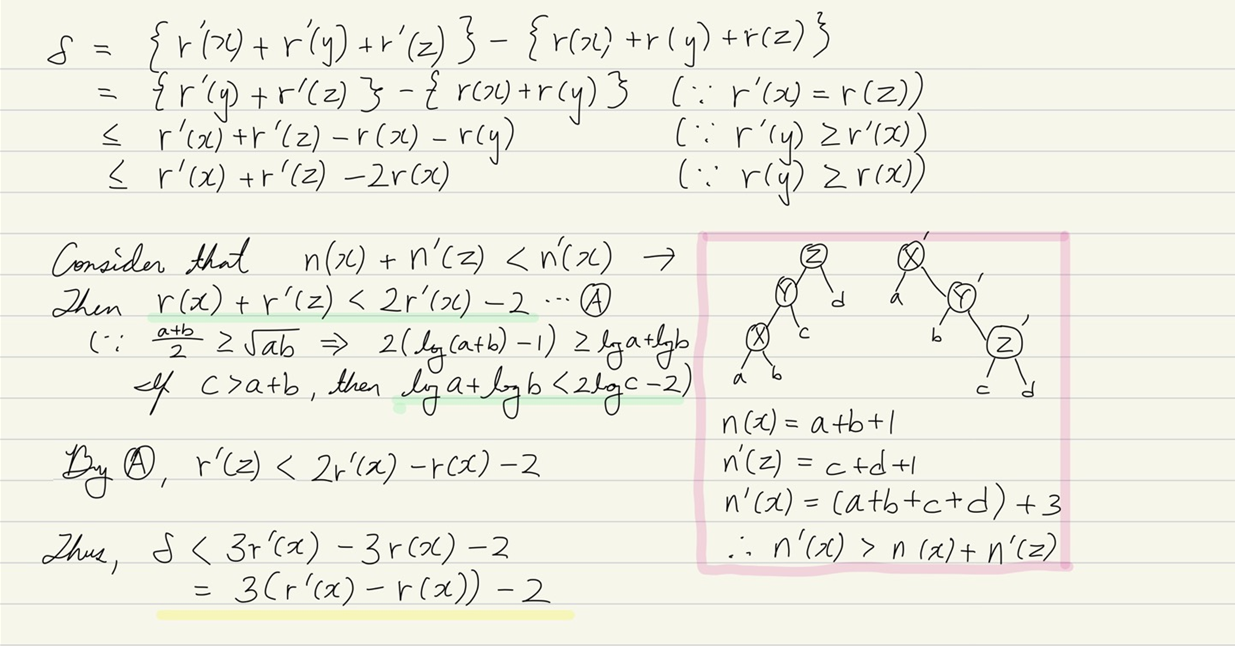 δ = {r'(x) + r'(y) + r'(z)} - {r(x) + r(y) + r(z)}
= {r'(y) + r'(z)} - {r(x) + r(y)} (∵ r'(x) = r(z))
≤ r'(x) + r'(z) - r(x) - r(y) (∵ r'(y) ≥ r'(x))
≤ r'(x) + r'(z) - 2r(x) (∵ r(y) ≥ r(x))
Consider that n(x) + n'(z) < n'(x) →
Then r(x) + r'(z) < 2r'(x) - 2 ... Ⓐ
(∵ a+b/2 ≥ √ab ⇒ 2(log(a+b) - 1) ≥ log a + log b
If c > a+b, then log a + log b < 2 log c - 2)
By Ⓐ, r'(z) < 2r'(x) - r(x) - 2
Thus, δ < 3r'(x) - 3r(x) - 2
= 3(r'(x) - r(x)) - 2
Z X'
Y d a Y'
X c b Z'
a b c d
n(x) = a+b+1
n'(z) = c+d+1
n'(x) = (a+b+c+d) + 3
∴ n'(x) > n(x) + n'(z)